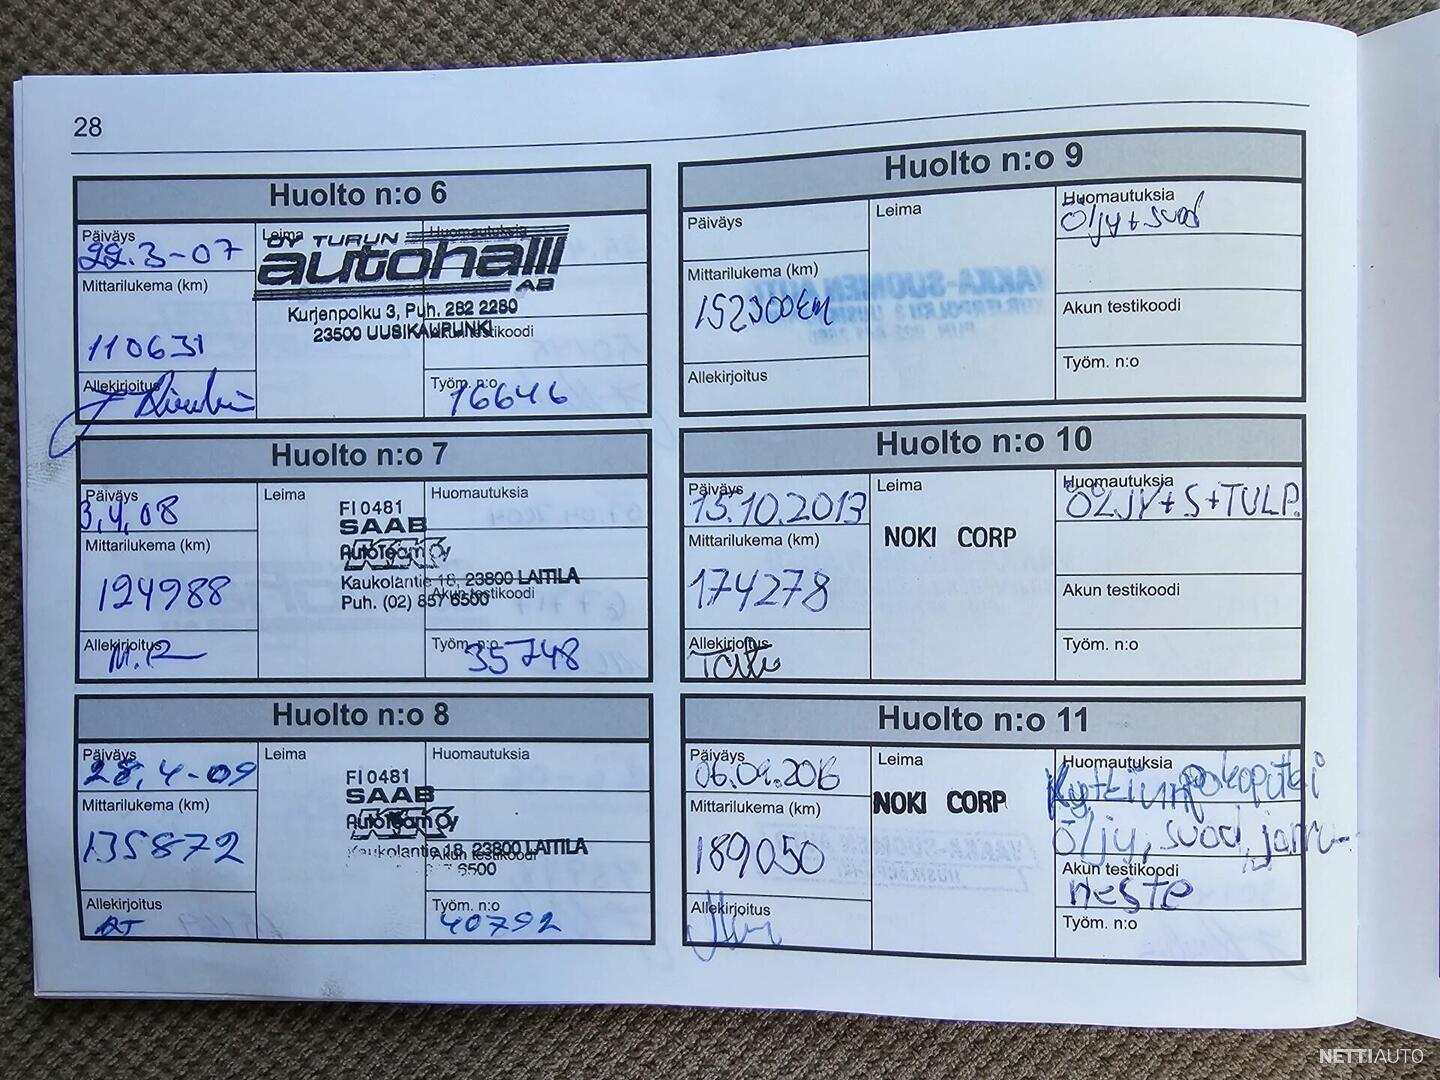 28
Huolto n:o 6
Päiväys
22.3-07
Mittarilukema (km)
110631
Allekirjoitus
Leima
OY TURUN
autohalli
AB
Kurjenpolku 3, Puh. 282 2280
23500 UUSIKAUPUNKI
Huomautuksia
Akun testikoodi
Työm. n:o
16646
Huolto n:o 7
Päiväys
3,4,08
Mittarilukema (km)
124988
Allekirjoitus
M.R
Leima
FI 0481
SAAB
AutoTeam Oy
Kaukolantie 18, 23800 LAITILA
Puh. (02) 857 6500
Huomautuksia
Akun testikoodi
Työm. n:o
35748
Huolto n:o 8
Päiväys
28,4-09
Mittarilukema (km)
135872
Allekirjoitus
Leima
FI 0481
SAAB
AutoTeam Oy
Kaukolantie 18, 23800 LAITILA
6500
Huomautuksia
Akun testikoodi
Työm. n:o
40792
Huolto n:o 9
Päiväys
Mittarilukema (km)
152300km
Allekirjoitus
Leima
VAKKA-SUOMEN
Huomautuksia
Öljy+suod
Akun testikoodi
Työm. n:o
Huolto n:o 10
Päiväys
15.10.2013
Mittarilukema (km)
174278
Allekirjoitus
Leima
NOKI CORP
Huomautuksia
ÖLJY+S+TULP.
Akun testikoodi
Työm. n:o
Huolto n:o 11
Päiväys
06.09.2016
Mittarilukema (km)
189050
Allekirjoitus
Leima
NOKI CORP
Huomautuksia
öljy, suod, jarru-
Akun testikoodi
neste
Työm. n:o
NETTIAUTO